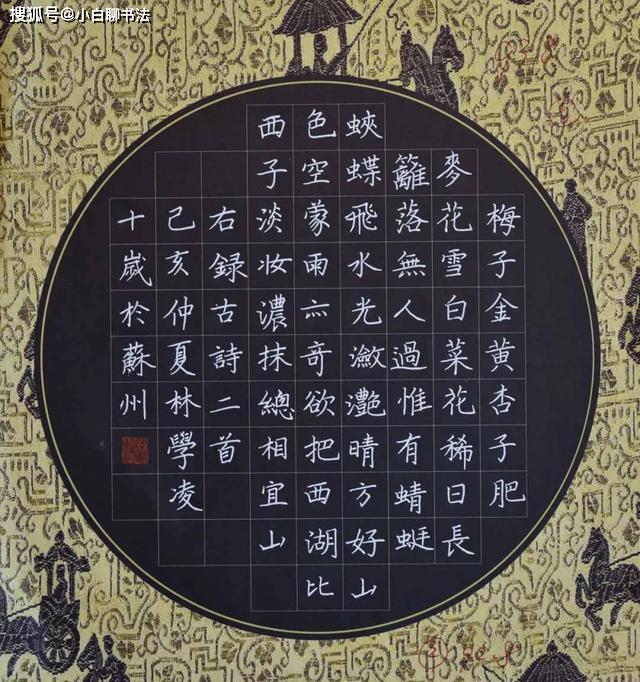 搜狐号@小白聊书法
梅子金黄杏子肥
麥花雪白菜花稀日長
籬落無人過惟有蜻蜓
蛺蝶飛水光瀲灔晴方好山
色空蒙雨亦奇欲把西湖比
西子淡妆濃抹總相宜山
右録古詩二首
己亥仲夏林學凌
十歲於蘇州